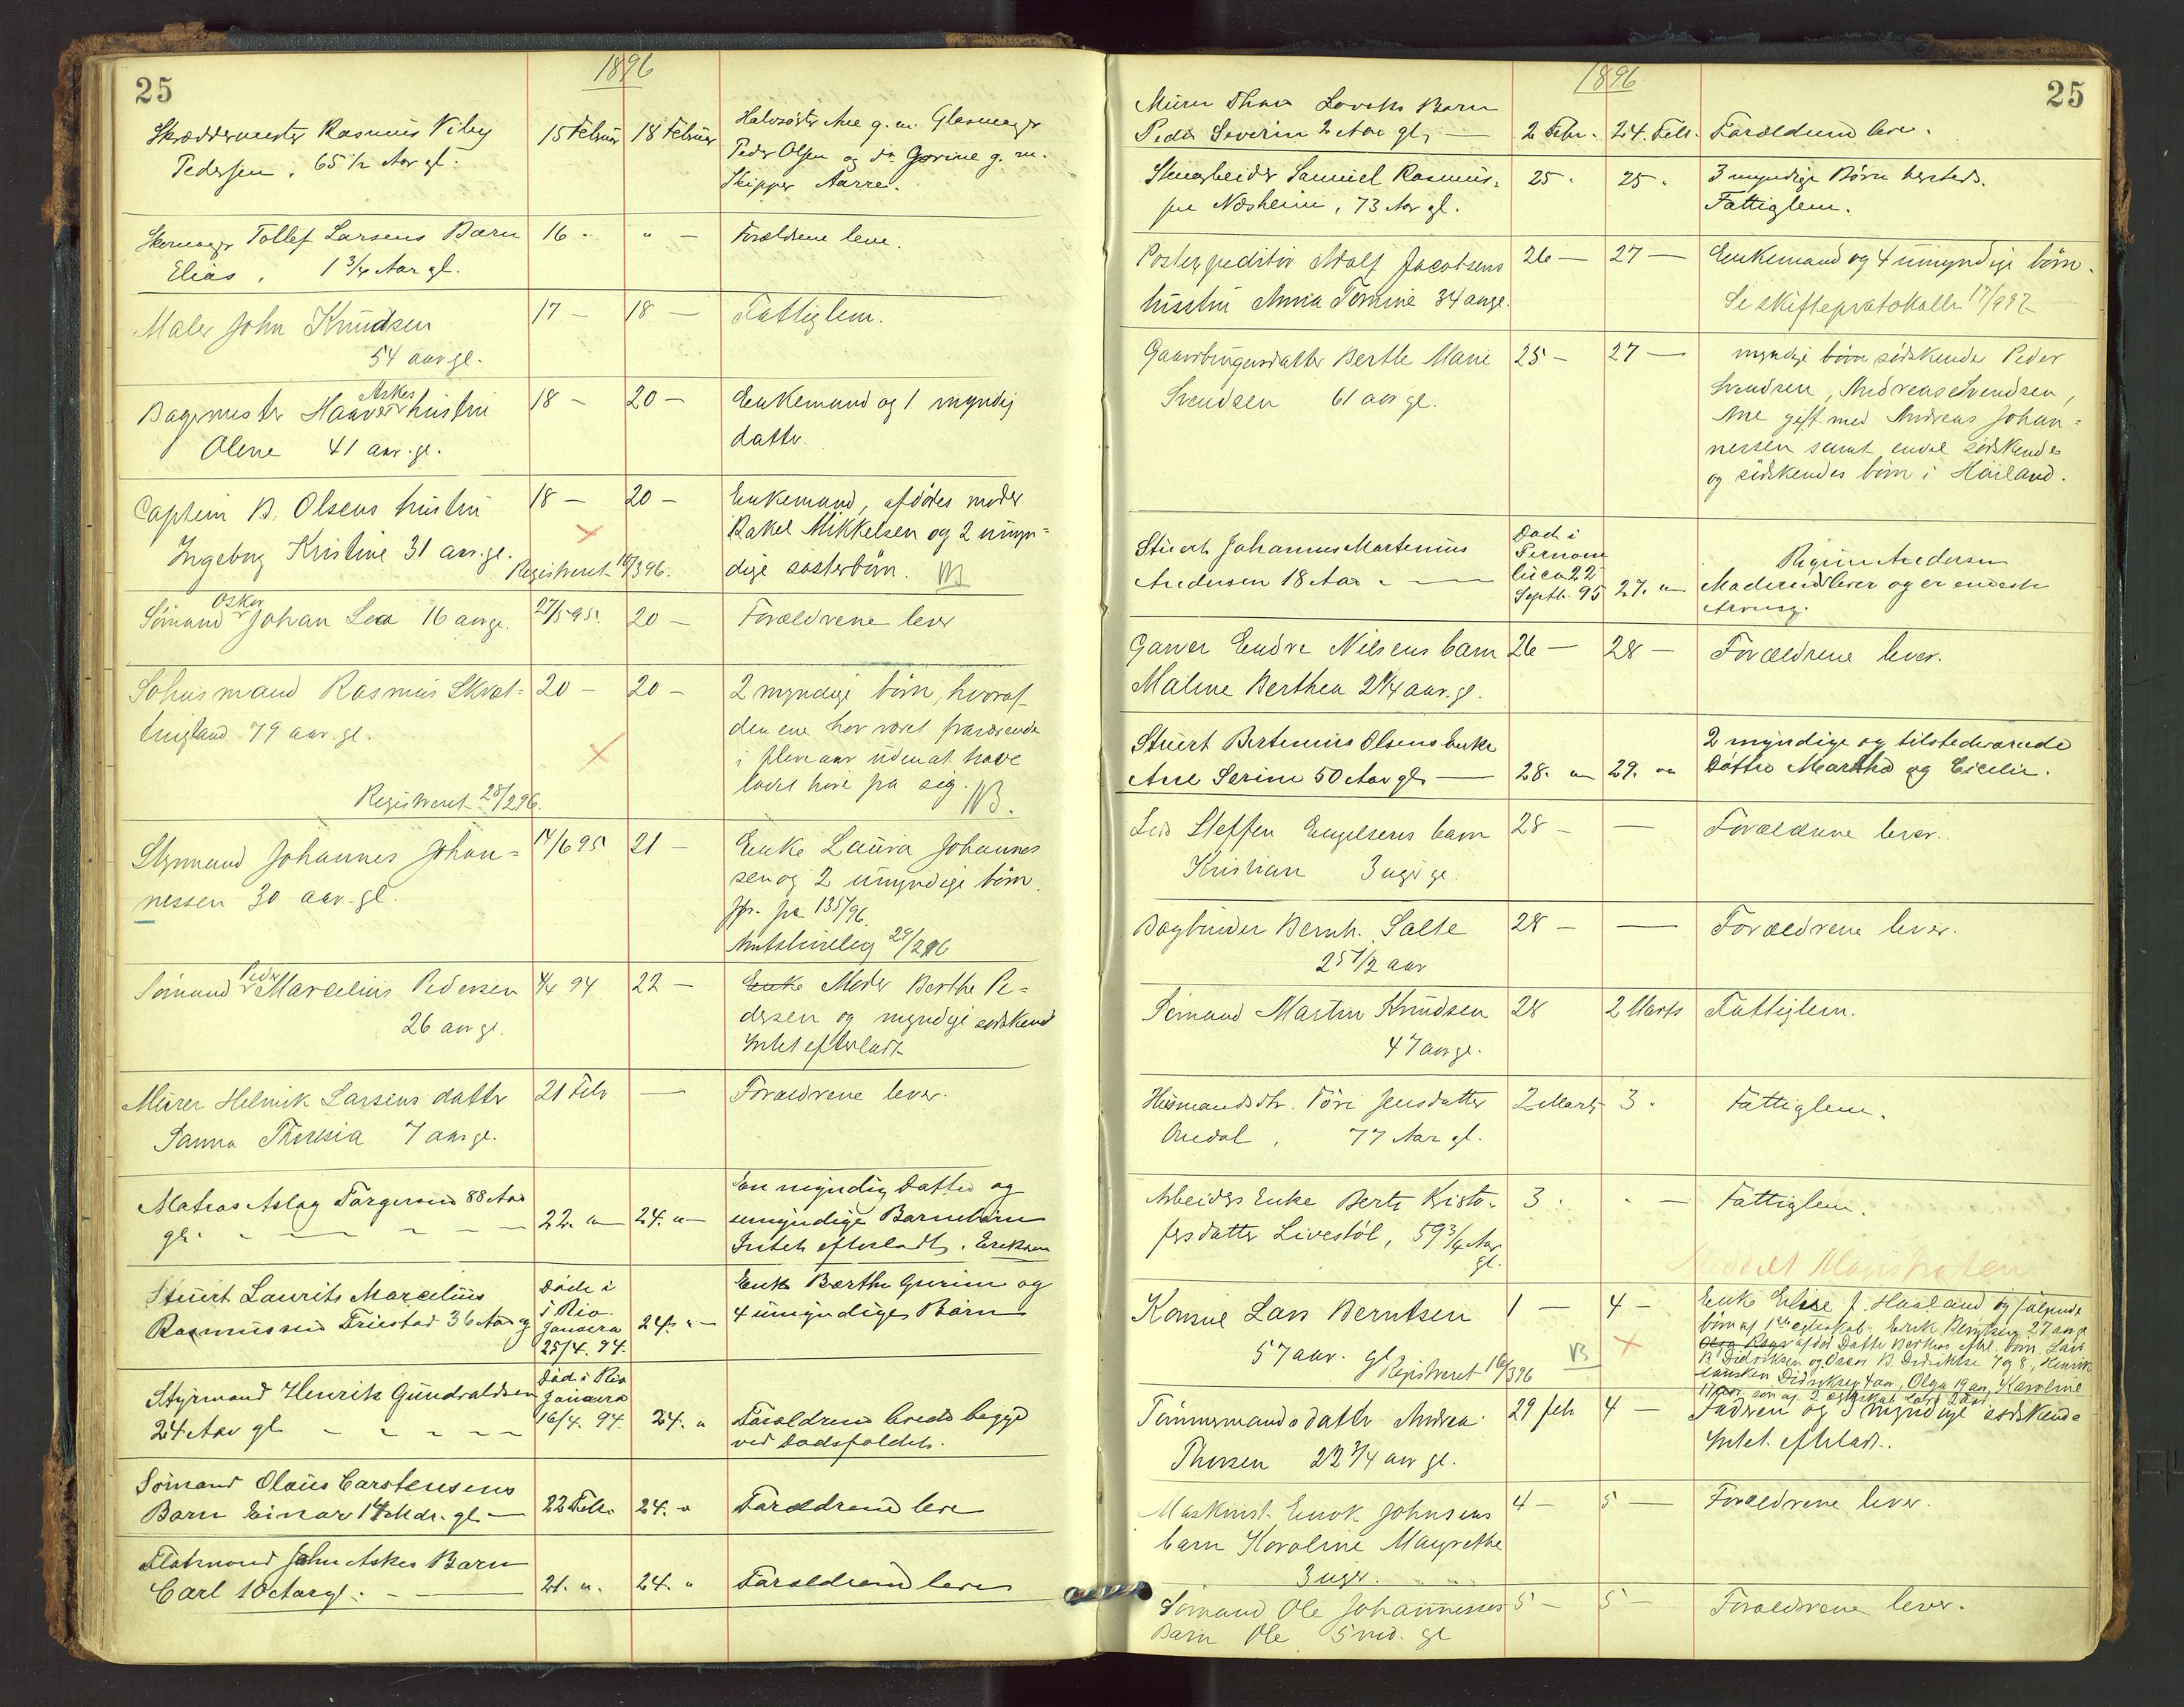 25
1896
Skræddermester Rasmus Viby
Pedersen, 65 1/2 Aar gl.
15 Februar
18 Februar
Halvsøster Ane g. m. Glasmager
Peder Olsen og do Gurine g. m.
Skipper Aarre.
Skomager Tollef Larsens Barn
Elias, 1 3/4 Aar gl.
16 "
" —
Forældrene leve.
Maler John Knudsen
54 aar gl.
17 —
18 —
Fattiglem.
Askes
Bagermester Haaver hustru
Olene 41 aar. gl.
18 —
20 —
Enkemand og 1 myndig
datter.
Captein B. Olsens hustru
Ingeborg Kristine 31 aar. gl.
Registreret 10/396.
18 —
20 —
Enkemand, afdødes moder
Rakel Mikkelsen og 2 umyn=
dige søsterbørn. NB
Oskar
Sømand Johan Lea 16 aar gl.
27/5 95.
20 —
Forældrene lever
Rasmus Skræt=
79 aar. gl.
Registreret 28/296.
20 —
20 —
2 myndige børn, hvoraf
den ene har været fraværende
i flere aar uden at have
ladet høre fra sig. NB.
Styrmand Johannes Johan=
nessen 30 aar. gl.
14/6 95
21 —
Enke Laura Johannes
sen og 2 umyndige børn.
Jfr. fra 135/96.
29/296
Peder
Sømand Marcelius Pedersen
26 aar gl.
4/4 94
22 —
Enke Moder Berthe Pe=
dersen og myndige sødskend
Intet efterladt
Murer Helmik Larsens datter
Janna Theresia 7 aar gl.
21 Feb
—
Forældrene lever.
Matros Aslag Torgersen 88 Aar
gl.
22. " —
24. " —
En myndig Datter og
umyndige Barnebørn
Intet efterladt. Eriksen
Stuert Laurits Marcelius
Rasmussen Friestad 36 Aar gl
Døde i
i Rio
Janeiro
25/4. 94.
24. " —
Enke Barthe Gurine og
4 umyndige Børn
Styrmand Henrik Gundvaldsen
24 Aar gl
Død i Rio
Janeiro
16/4. 94.
24. "
Forældrene levede begge
ved Dødsfaldet.
Sømand Olaus Carstensens
Barn Einar 14 Mdr. gl —
22 Feb.
24. "
Forældrene leve
Flatmand John Askes Barn
Carl 10 Aar gl. —
21. ".
24. "
Forældrene leve
25
1896
Murer Thor Loveks Barn
Peder Severin 2 Aar gl, —
2 Febr.
24. Feb.
Forældrene leve.
Stenarbeider Samuel Rasmus=
sen Nesheim, 73 Aar gl.
25 "
25 "
3 myndige Børn hersteds.
Fattiglem.
Postexpeditør Adolf Jacobsens
hustru Anna Tomine 34 aar gl.
26 —
27 —
Enkemand og 4 umyndige børn.
Se skifteprotokollen 17/992
Gaardbrugersdatter Berthe Marie
Svendsen 61 aar gl.
25 —
27 —
myndige børn sødskende Peder
Svendsen, Andreas Svendsen,
Ane gift med Andreas Johan=
nessen samt endel sødskende
og sødskendes børn i Høiland.
Stuert Johannes Martenius
Andersen 18 Aar —
Død i
Pernam
circa 22
Septb. 95
27. "
Regine Andersen
Moderen lever og er eneste
Arving.
Garver Endre Nilsens barn
Maline Berthea 2 1/4 aar. gl.
26 —
28 —
Forældrene lever.
Stuert Bertenius Olsens Enke
Ane Serine 50 Aar gl —
28. "
29. "
2 myndige og tilstedeværende
Døttre Martha og Cicelie.
Steffen Engelsens barn
Kristian 3 uger gl.
28 —
—
Forældrene lever.
Bogbinder Bernh. Salte
25 1/2 aar
28 —
—
Forældrene lever.
Sømand Martin Knudsen
47 aar gl.
28
2 Marts
Fattiglem.
Husmandsdtr. Tøri Jensdatter
Øvedal, 77 Aar gl.
2 Marts
3 "
Fattiglem.
Arbeiders Enke Berte Kristo=
fersdatter Livestøl, 59 3/4 Aar
gl.
3 "
" —
Fattiglem.
Meddelt Magistraten
Lars Berntsen
57 aar. gl
Registreret 10/396
NB
1 —
4 —
Enke Elise J. Haaland og følgende
børn af 1ste egteskab. Enrik Berntsen 27 aar gl
Olga afdød Datter Berthas efterl. børn. Lars
B. Didriksen og Oscar B. Didriksen 7 og 8, Henrik
Didriksen 4 aar, Olga 19 aar, Karoline
17 aar, søn af 2 egteskab Lars 2 aar
Tømmermandsdatter Andrea
Thorsen 22 3/4 aar gl.
29 feb
4 —
Faderen og 3 myndige sødskende
Intet efterladt.
Maskinist Enok Johnsens
barn Karoline Margrethe
3 uger.
4 —
5 —
Forældrene lever.
Sømand Ole Johannesses
Barn Ole 5 md. gl
5 —
5 —
Forældrene lever.